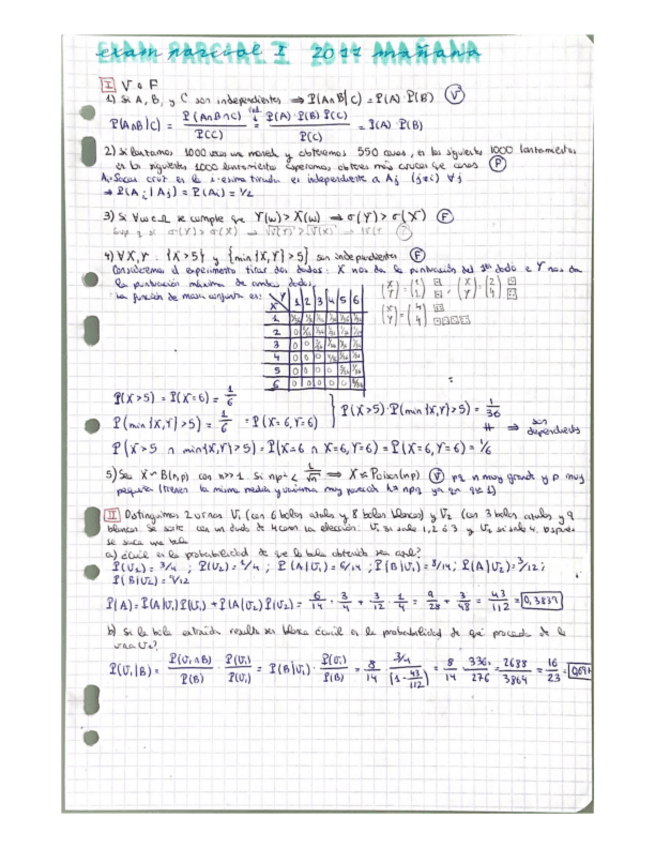 exam parcial I 2011 MAÑANA
I V o F
1) Si A, B, y C son independientes ⇒ P(A∩B|C) = P(A)·P(B) (V)
P(A∩B|C) = P(A∩B∩C)/P(C) = P(A)·P(B)·P(C)/P(C) = P(A)·P(B)
2) Si lanzamos 1000 veces una moneda y obtenemos 550 caras, en los siguientes 1000 lanzamientos
en los siguientes 1000 lanzamientos esperamos obtener más cruces que caras
Ai: Sacar cruz en la i-esima tirada es independiente a Aj (j≠i) ∀j
⇒ P(Ai|Aj) = P(Ai) = 1/2
3) Si ∀ω∈Ω se cumple que Y(ω) > X(ω) ⇒ σ(Y) > σ(X) (F)
σ(Y) > σ(X) ⇒
4) ∀X,Y : {X>5} y {min{X,Y}>5} son independientes (F)
Consideremos el experimento tirar dos dados: X nos da la puntuación del 1er dado e Y nos da
la puntuación máxima de ambos dados
La función de masa conjunta es:
X Y 1 2 3 4 5 6
1
2 0
3 0 0
4 0 0 0
5 0 0 0 0
6 0 0 0 0 0
P(X>5) = P(X=6) = 1/6
P(min{X,Y}>5) = 1/6 = P(X=6, Y=6)
P(X>5)·P(min{X,Y}>5) = 1/36
⇒ son dependientes
P(X>5 ∩ min{X,Y}>5) = P(X=6 ∩ X=6, Y=6) = P(X=6, Y=6) = 1/6
5) Sea X~B(n,p) con n>>1. Si np² < 1/√n ⇒ X≈Poisson(np) (V) pq n muy grande y p muy
pequeña (tienen la misma media y varianza muy parecida
II Distinguimos 2 urnas U1 (con 6 bolas azules y 8 bolas blancas) y U2 (con 3 bolas azules y 9
blancas se sortea con un dado de 4 caras la elección: U1 si sale 1,2 ó 3 y U2 si sale 4. Después
se saca una bola
a) ¿Cuál es la probabilidad de que la bola obtenida sea azul?
P(U1) = 3/4 ; P(U2) = 1/4 ; P(A|U1) = 6/14 ; P(B|U1) = 8/14 ; P(A|U2) = 3/12 ;
P(B|U2) = 9/12
P(A) = P(A|U1)P(U1) + P(A|U2)P(U2) = 6/14 · 3/4 + 3/12 · 1/4 = 9/28 + 3/48 = 43/112 = 0,3839
b) Si la bola extraída resulta ser blanca ¿cuál es la probabilidad de que proceda de la
urna U1?
P(U1|B) = P(U1∩B)/P(B) · P(U1)/P(U1) = P(B|U1) · P(U1)/P(B) = 8/14 · (3/4)/(1-43/112) = 8/14 · 336/276 = 2688/3864 = 16/23 =